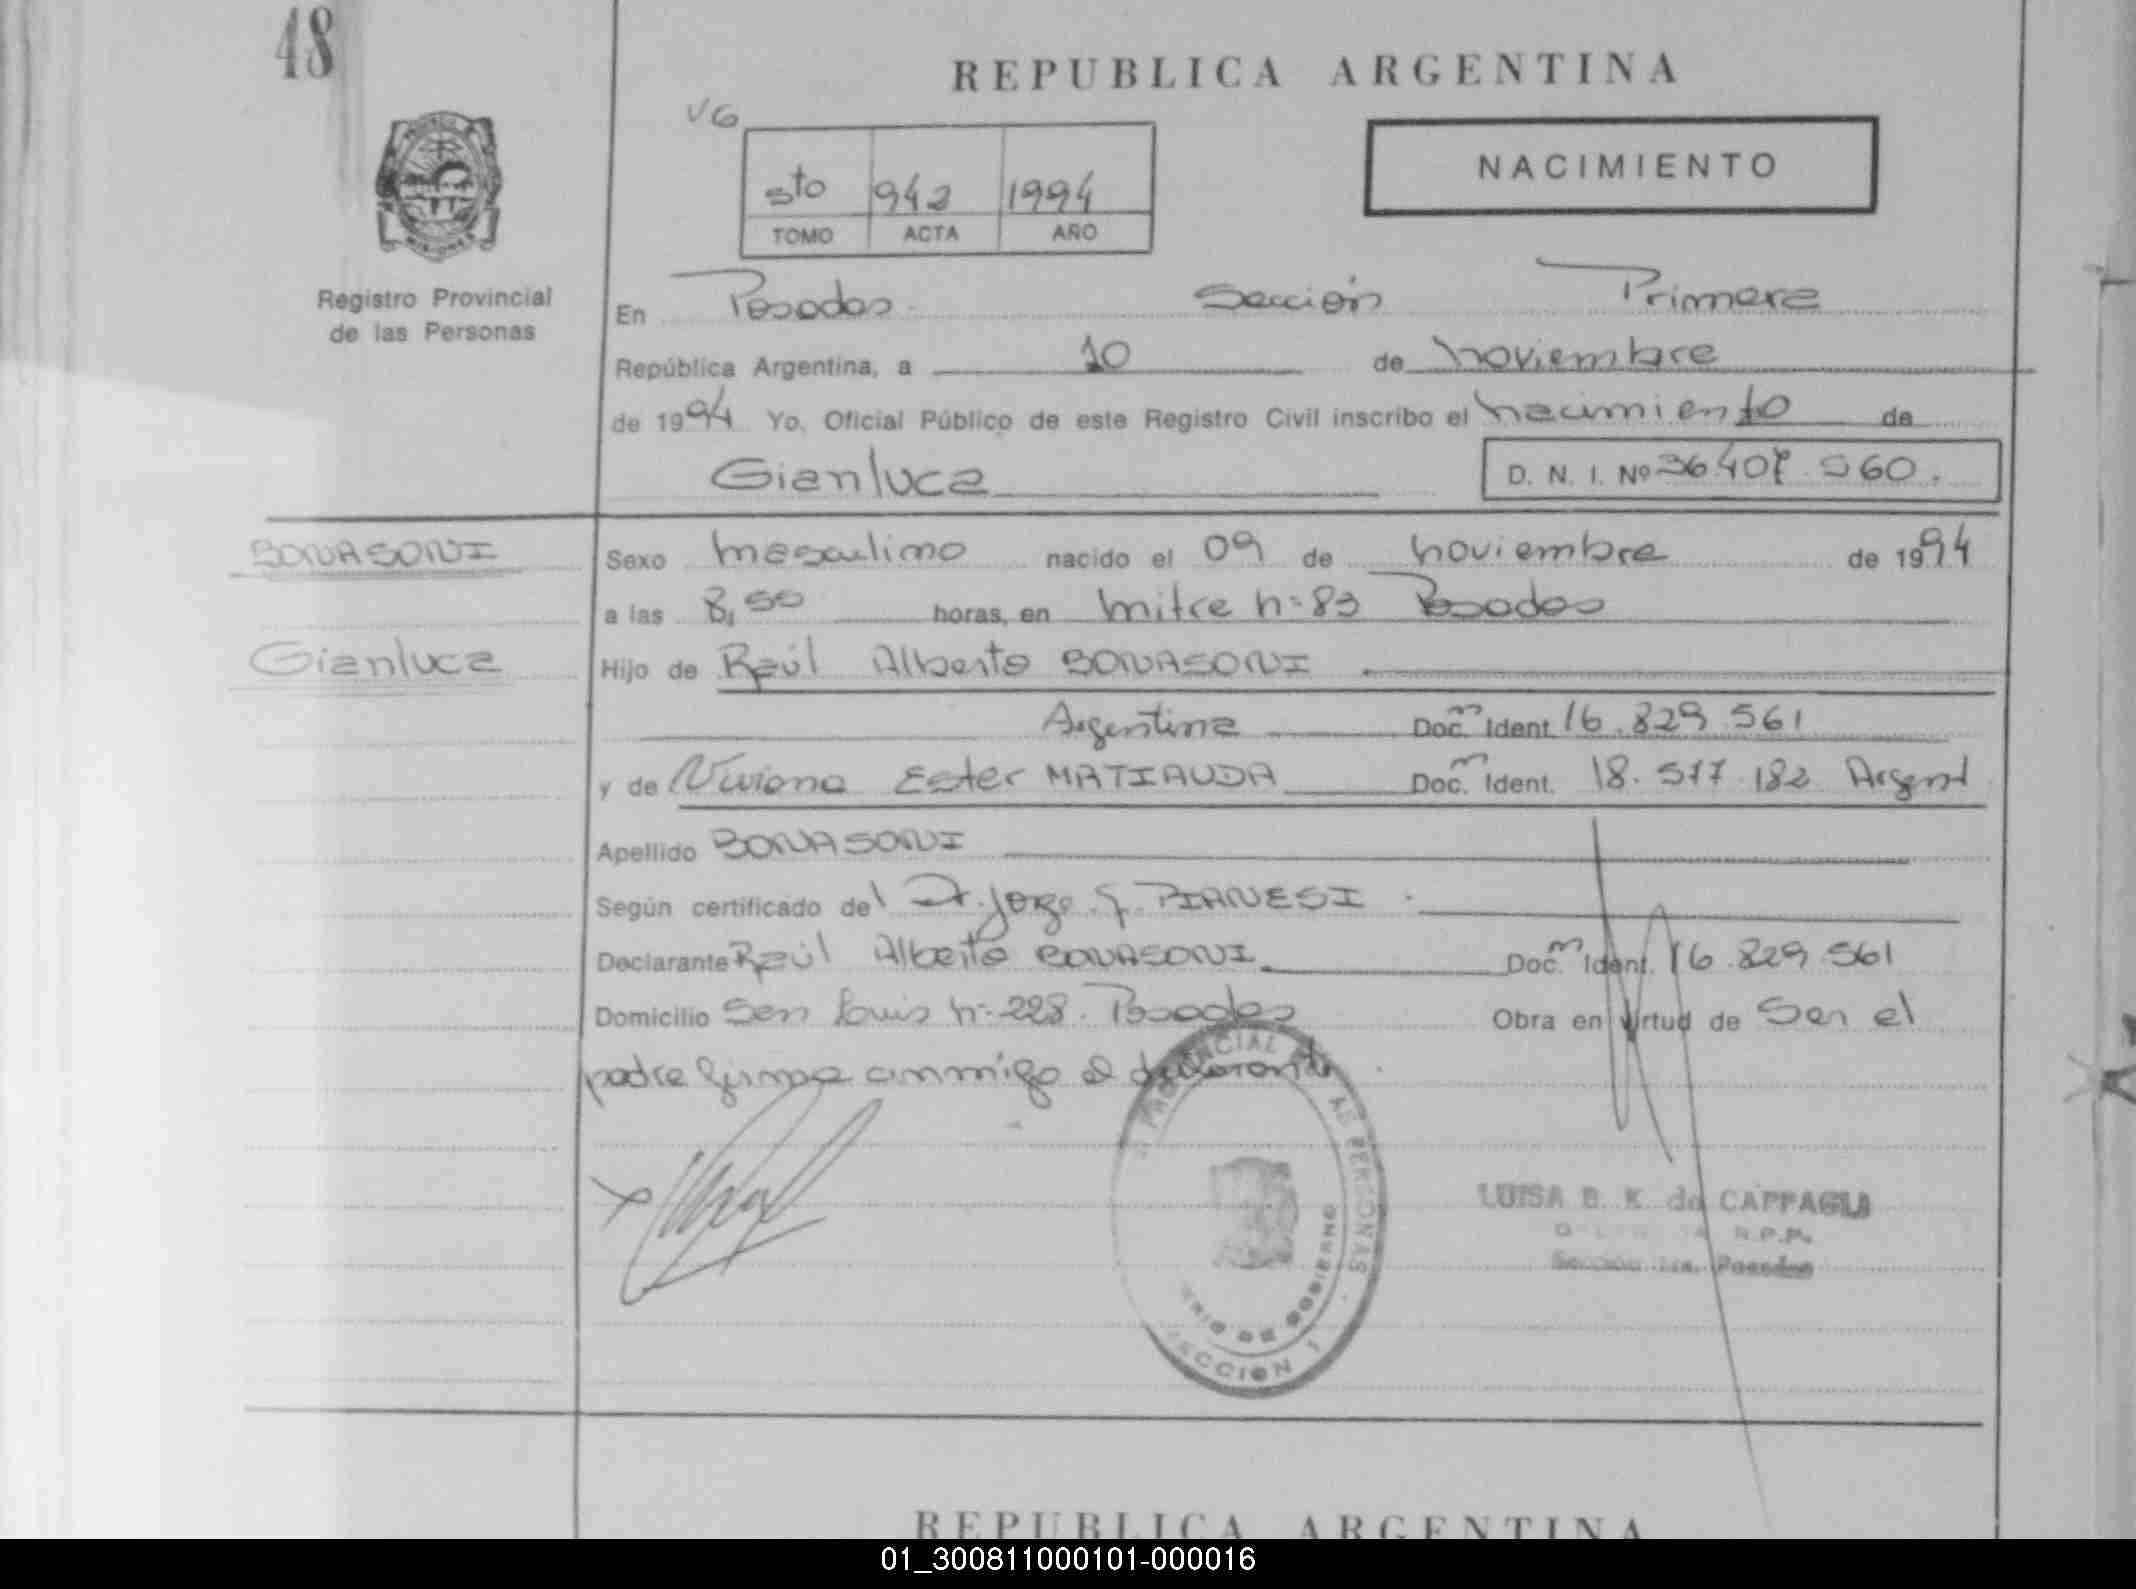 48
REPUBLICA ARGENTINA
VG
5to 942 1994
TOMO ACTA AÑO
NACIMIENTO
MISIONES
Registro Provincial
de las Personas
En Posadas Sección Primera
República Argentina, a 10 de noviembre
de 1994 Yo, Oficial Público de este Registro Civil inscribo el nacimiento de
Gianluca D. N. I. Nº 36.407.560.
BONASONI
Sexo masculino nacido el 09 de noviembre de 1994
a las 8,50 horas, en mitre nº 83 Posadas
Gianluca
Hijo de Raúl Alberto BONASONI
Argentina Doc. Ident. 16.829.561
y de Viviana Ester MATIAUDA Doc. Ident. 18.577.182 Argent
Apellido BONASONI
Según certificado del Dr. Jorge PIANESI
Declarante Raúl Alberto BONASONI Doc. Ident. 16.829.561
Domicilio San Luis nº 228. Posadas Obra en virtud de Ser el
padre firma conmigo el declarante
PROVINCIAL DE PERSONAS
DE GOBIERNO
SECCION 1
LUISA B. K. de CAPPAGLI
R.P.P.
Sección 1ra. Posadas
REPUBLICA ARGENTINA
01_300811000101-000016